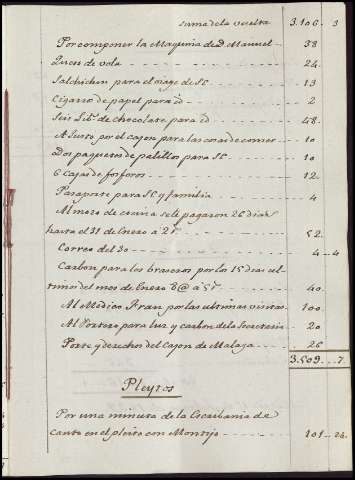 Suma de la vuelta 3.106 .. 3
Por componer la Maquina de d. Manuel -- 38
Queso de vola -- 24
Salchichon para el viage de SC -- 13
Cigarros de papel para id -- 2
Seis Lib.s de chocolate para id -- 48
A Justo por el cajon para las cosas de comer -- 10
Dos paquetes de palillos para SC -- 10
6 Cajas de fosforos -- 12
Pasaporte para SC y familia -- 4
Al mozo de cocina se le pagaron 26 dias
hasta el 31 de Enero a 2 r.s -- 52
Correo del 30 -- 4 .. 4
Carbon para los braseros por los 15 dias ul-
timos del mes de Enero 8@ a 5 r.s -- 40
Al Medico Fran por las ultimas visitas -- 100
Al Portero para luz y carbon de la Secretaria -- 20
Porte y derechos del Cajon de Malaga -- 25
3.509 .. 7
Pleytos
Por una minuta de la Escribania de
Canto en el pleito con Montijo -- 101 .. 24